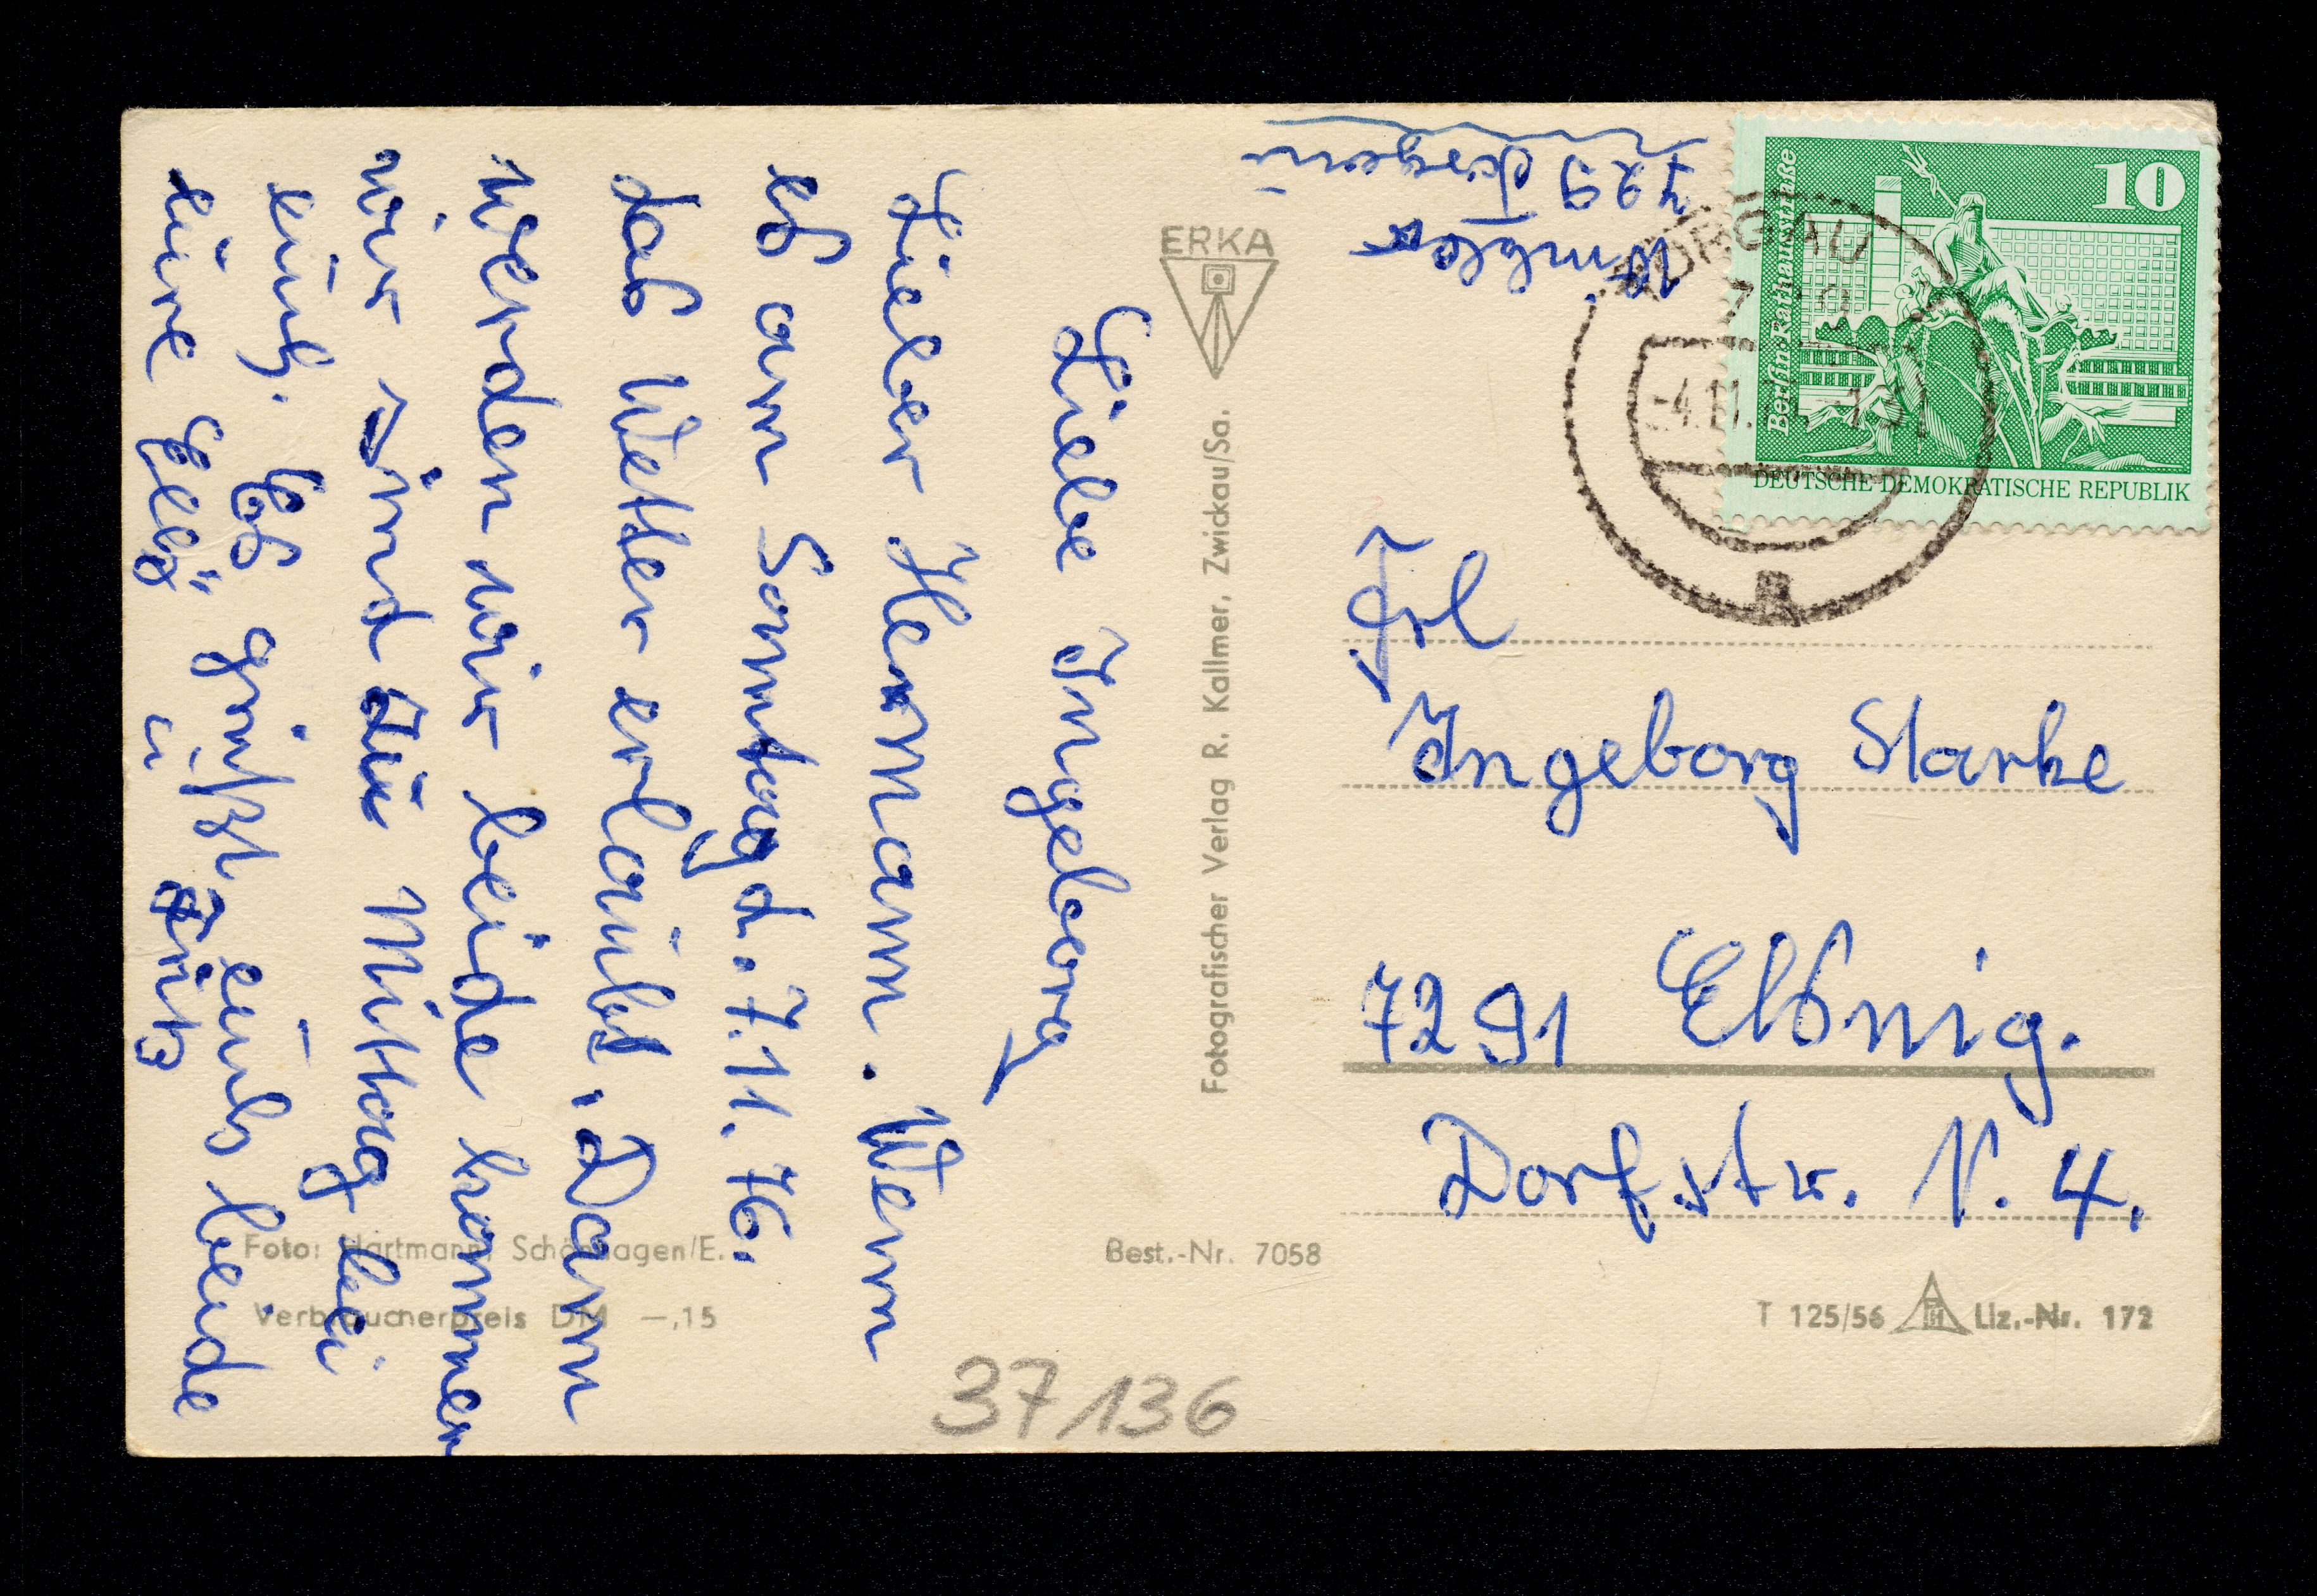 Liebe Ingeborg
Lieber Hermann. Wenn
es am Sonntag d. 7.11.76.
das Wetter erlaubt. Dann
werden wir beide kommen
wir sind zu Mittag bei
euch. Es grüßt euch beide
eure Ella u Fritz
ERKA
Fotografischer Verlag R. Kallmer, Zwickau/Sa.
Foto: Hartmann, Schönhagen/E.
Verbraucherpreis DM —,15
Best.-Nr. 7058
37/136
729
10
Berlin, Rathausstraße
DEUTSCHE DEMOKRATISCHE REPUBLIK
TORGAU
-4.11.
Frl
Ingeborg Starke
7291 Elsnig.
Dorfstr. N. 4.
T 125/56 Liz.-Nr. 172